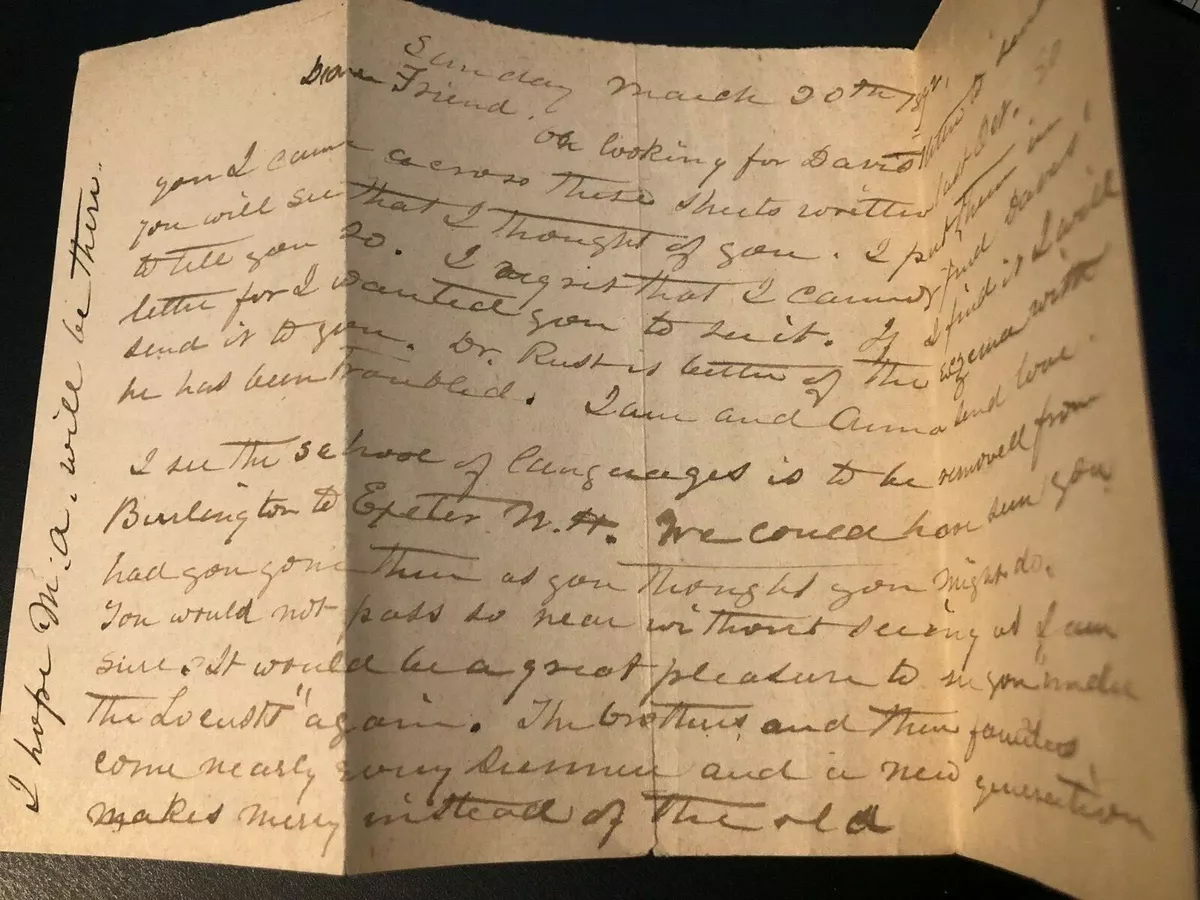 Sunday March 20th 1892.
Dear Friend.
On looking for Davis' letter to send
you I came across these sheets written last Oct. So
you will see that I thought of you. I put them in
to tell you so. I regret that I cannot find Davis'
letter for I wanted you to see it. If I find it I will
send it to you. Dr. Rust is better of the eczema with
he has been troubled. I am and Anna send love.
I see the school of languages is to be removed from
Burlington to Exeter N.H. We could have seen you
had you gone there as you thought you might do.
You would not pass so near without seeing us I am
sure. It would be a great pleasure to see you "under
the Locusts" again. The brothers and their families
come nearly every summer and a new generation
makes merry instead of the old
I hope M.A. will be there.